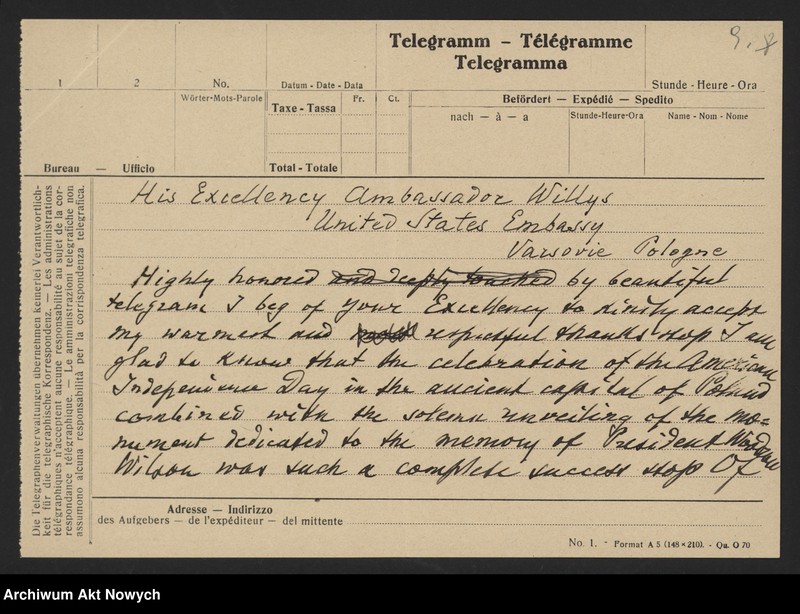 Telegramm – Télégramme
Telegramma
1
2
No.
Wörter-Mots-Parole
Datum - Date - Data
Taxe - Tassa
Fr.
Ct.
Total - Totale
Stunde - Heure - Ora
Befördert — Expédié — Spedito
nach — à — a
Stunde-Heure-Ora
Name - Nom - Nome
Bureau — Ufficio
Die Telegraphenverwaltungen übernehmen keinerlei Verantwortlich-
keit für die telegraphische Korrespondenz. — Les administrations
télégraphiques n'acceptent aucune responsabilité au sujet de la cor-
respondance télégraphique. Le amministrazioni telegrafiche non
assumono alcuna responsabilità per la corrispondenza telegrafica.
His Excellency Ambassador Willys
United States Embassy
Varsovie Pologne
Highly honored and deeply touched by beautiful
telegram I beg of your Excellency to kindly accept
my warmest and respectful thanks stop I am
glad to know that the celebration of the American
Independence Day in the ancient capital of Poland
combined with the solemn unveiling of the mo=
nument dedicated to the memory of President Woodrow
Wilson was such a complete success stop Of
Adresse — Indirizzo
des Aufgebers — de l'expéditeur — del mittente
No. 1. - Format A 5 (148×210). - Qu. O 70
Archiwum Akt Nowych